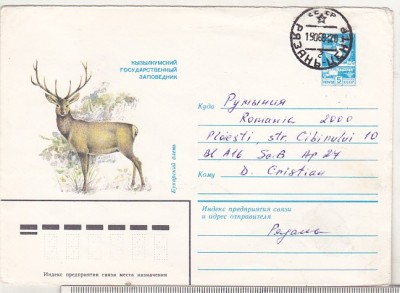 КЫЗЫЛКУМСКИЙ
ГОСУДАРСТВЕННЫЙ
ЗАПОВЕДНИК
Бухарский олень
СССР
РЯЗАНЬ
5
ПОЧТА СССР
Куда Румыния
Romania 2000
Ploesti, str. Cibinului 10
Bl A16 Sc.B Ap 27
Кому D. Cristian
Индекс предприятия связи
и адрес отправителя
Индекс предприятия связи места назначения